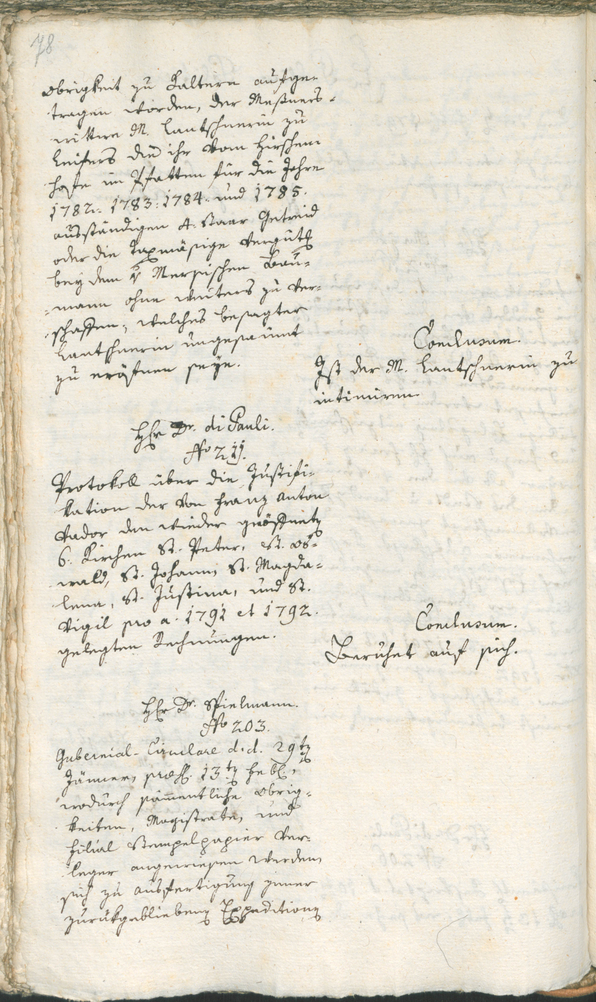 78
obrigkeit zu Kaltern aufge-
tragen worden, der Meßners-
wittwe M. Lantschnerin zu
Leifers die ihr vom Hirschen-
hofe in Pfatten für die Jahre
1782. 1783. 1784. und 1785.
ausständigen 4. Staar Getreid
oder die taxmäßige Vergüth
bey dem v Merzischen Bau-
mann ohne weiters zu ver-
schaffen, welches besagter
Lantschnerin ungesäumt
zu eröfnen seye.
Conclusum.
Ist der M. Lantschnerin zu
intimiren
Hr Dr. di Pauli.
No 211.
Protokoll über die Justifi-
kation der von Franz Anton
Vador den wieder geöffnetn
6. Kirchen St. Peter, St. Os-
wald, St. Johann, St. Magda-
lena, St. Justina, und St.
Vigil pro a. 1791 et 1792.
gelegten Rechnungen.
Conclusum.
Beruhet auf sich.
Hr Dr. Spielmann.
No 203.
Gubernial-Circulare d.d. 29tn
Jänner, 13tn Febr.,
wodurch sämmentliche Obrig-
keiten, Magistrate, und
Filial Stempelpapier Ver-
leger angewiesen werden,
sich zu Ausfertigung jener
zurükgebliebenen Expeditionen